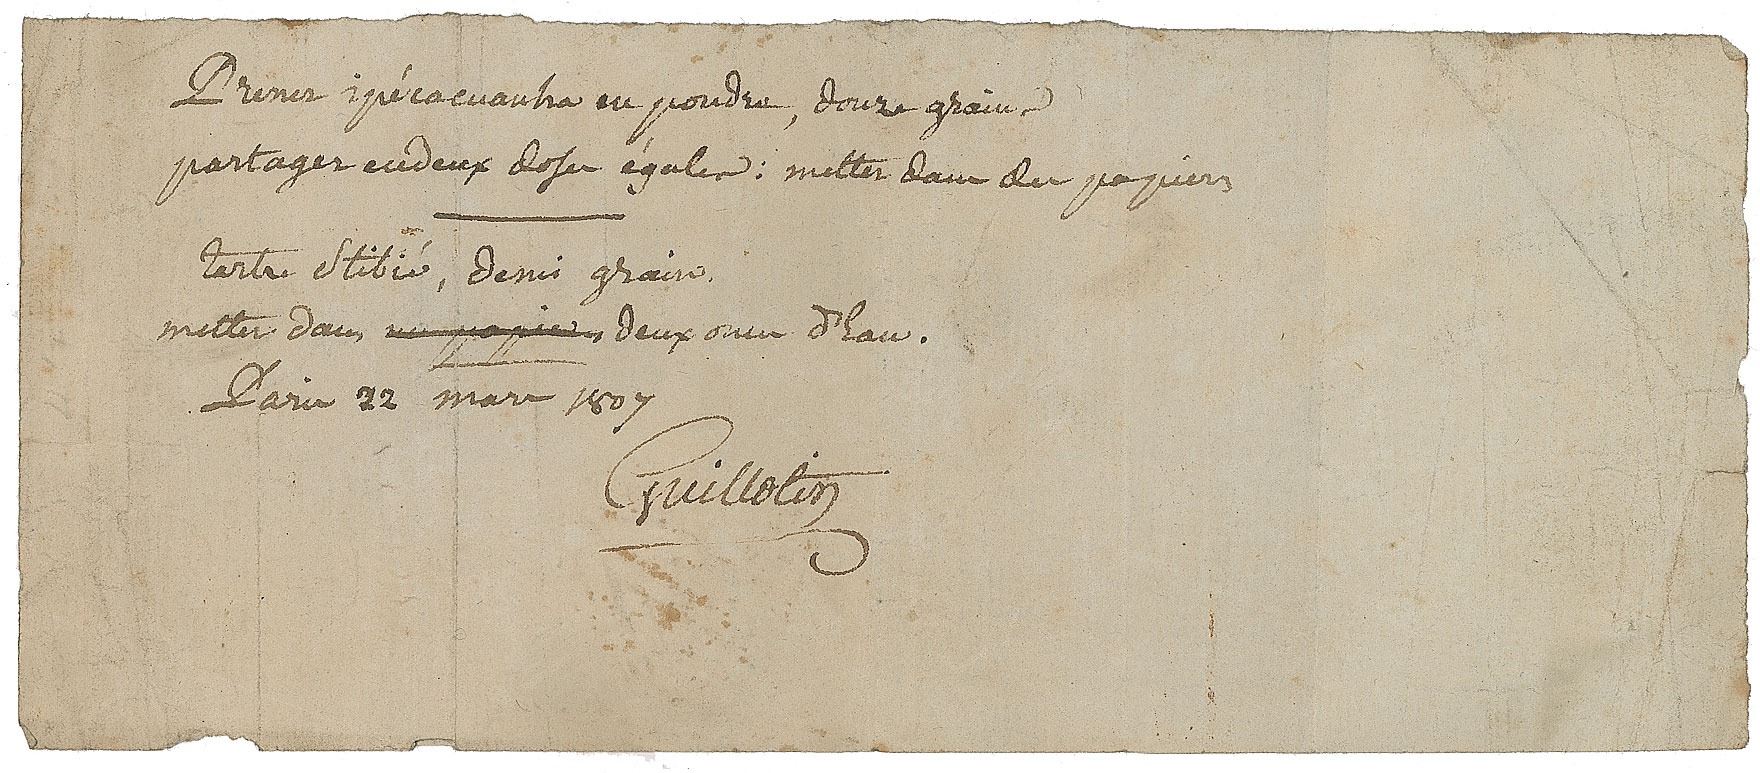 Prenez ipécacuanha en poudre, douze grains
partagez en deux doses égales : mettez dans des papiers
tartre stibié, demi grain.
mettez dans un papier, deux onces d'Eau.
Paris 22 mars 1807
Guillotin